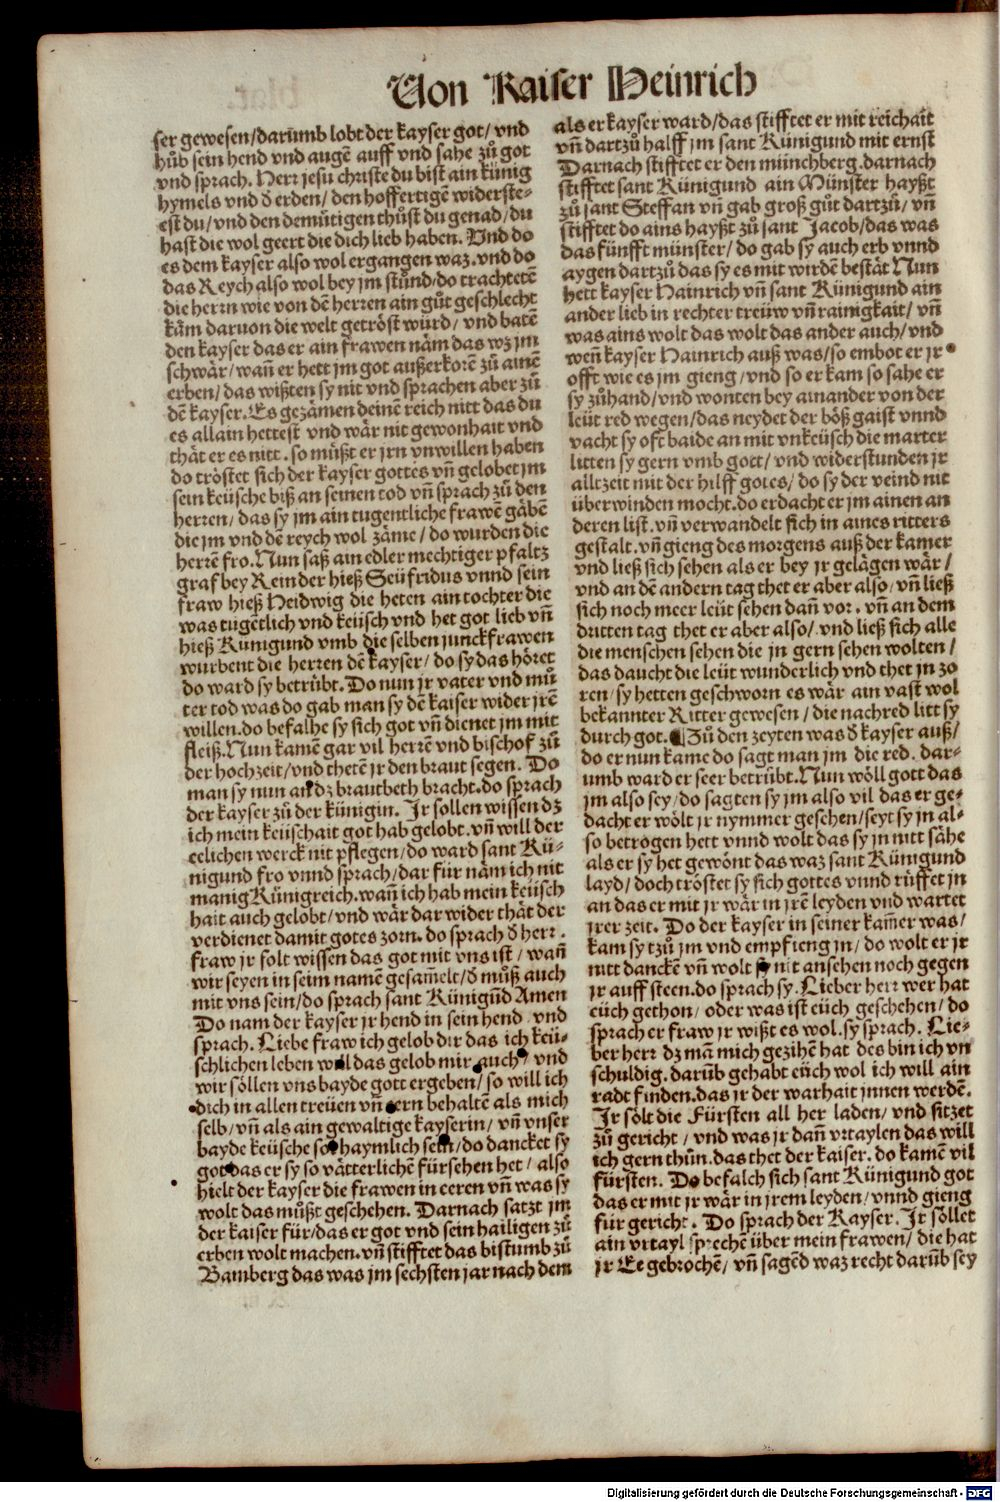 Von Kaiser Heinrich
ser gewesen/darumb lobt der kayser got/vnd
hůb sein hend vnd augē auff vnd sahe zů got
vnd sprach. Herr jesu christe du bist ain künig
hymels vnd d̄ erden/den hoffertigē widerste-
est du/vnd den demütigen thůst du genad/du
hast die wol geert die dich lieb haben. Vnd do
es dem kayser also wol ergangen waz.vnd do
das Reych also wol bey jm stůnd/do trachtetē
die herrn wie von dē herren ain gůt geschlecht
käm daruon die welt getröst würd/vnd batē
den kayser das er ain frawen näm das wz jm
schwär/wañ er hett jm got außerkorē zů ainē
erben/das wißten sy nit vnd sprachen aber zů
dē kayser. Es gezämen deinē reich nitt das du
es allain hettest vnd wär nit gewonhait vnd
thät er es nitt.so můßt er jrn vnwillen haben
do tröstet sich der kayser gottes vñ gelobet jm
sein keüsche biß an seinen tod vñ sprach zů den
herren/das sy jm ain tugentliche frawē gäbē
die jm vnd dē reych wol zäme/do wurden die
herrē fro. Nun saß ain edler mechtiger pfaltz
graf bey Rein der hieß Seüfridus vnnd sein
fraw hieß Heidwig die heten ain tochter die
was tugētlich vnd keüsch vnd het got lieb vñ
hieß Künigund vmb die selben junckfrawen
wurbent die herren dē kayser/do sy das höret
do ward sy betrübt. Do nun jr vater vnd můt
ter tod was do gab man sy dē kaiser wider jrē
willen.do befalhe sy sich got vñ dienet jm mit
fleiß. Nun kamē gar vil herrē vnd bischof zů
der hochzeit/vnd thetē jr den braut segen. Do
man sy nun an dz brautbeth bracht.do sprach
der kayser zů der künigin. Jr sollen wissen dz
ich mein keüschait got hab gelobt.vñ will der
eelichen werck nit pflegen/do ward sant Kü-
nigund fro vnnd sprach/dar für näm ich nit
manig Künigreich.wañ ich hab mein keüsch
hait auch gelobt/vnd wär dar wider thät der
verdienet damit gotes zorn.do sprach d̄ herr.
fraw jr solt wissen das got mit vns ist/wañ
wir seyen in seim namē gesam̄elt/d̄ můß auch
mit vns sein/do sprach sant Künigūd Amen
Do nam der kayser jr hend in sein hend vnd
sprach. Liebe fraw ich gelob dir das ich keü-
schlichen leben will das gelob mir auch/vnd
wir söllen vns bayde gott ergeben/so will ich
dich in allen treüen vñ eern behaltē als mich
selb/vñ als ain gewaltige kayserin/vñ vnser
bayde keüsche sol haymlich sein/do dancket sy
got das er sy so vätterlichē fürsehen het/also
hielt der kayser die frawen in eeren vñ was sy
wolt das můßt geschehen. Darnach satzt jm
der kaiser für/das er got vnd sein hailigen zů
erben wolt machen.vñ stifftet das bistumb zů
Bamberg das was jm sechsten jar nach dem
als er kayser ward/das stifftet er mit reichait
vñ dartzů halff jm sant Künigund mit ernst
Darnach stifftet er den münchberg.darnach
stifftet sant Künigund ain Münster hayßt
zů sant Steffan vñ gab groß gůt dartzů/vñ
stifftet do ains hayßt zů sant Jacob/das was
das fünfft münster/do gab sy auch erb vnnd
aygen dartzů das sy es mit wirdē bestät Nun
hett kayser Hainrich vñ sant Künigund ain
ander lieb in rechter treüw vñ rainigkait/vñ
was ains wolt das wolt das ander auch/vnd
weñ kayser Hainrich auß was/so embot er jr
offt wie es jm gieng/vnd so er kam so sahe er
sy zůhand/vnd wonten bey ainander von der
leüt red wegen/das neydet der böß gaist vnnd
vacht sy oft baide an mit vnkeüsch die marter
litten sy gern vmb gott/vnd widerstunden jr
alltzeit mit der hilff gotes/do sy der veind nit
überwinden mocht.do erdacht er jm ainen an
deren list.vñ verwandelt sich in aines ritters
gestalt.vñ gieng des morgens auß der kamer
vnd ließ sich sehen als er bey jr gelägen wär/
vnd an dē andern tag thet er aber also/vñ ließ
sich noch meer leüt sehen dañ vor.vñ an dem
dritten tag thet er aber also/vnd ließ sich alle
die menschen sehen die jn gern sehen wolten/
das daucht die leüt wunderlich vnd thet jn zo
ren/sy hetten geschworn es wär ain vast wol
bekannter Ritter gewesen/die nachred litt sy
durch got. ¶Zů den zeyten was d̄ kayser auß/
do er nun kame do sagt man jm die red.dar-
umb ward er seer betrübt. Nun wöll gott das
jm also sey/do sagten sy jm also vil das er ge-
dacht er wölt jr nymmer gesehen/seyt sy jn al-
so betrogen hett vnnd wolt das sy jn nitt sähe
als er sy het gewönt das waz sant Künigund
layd/doch tröstet sy sich gottes vnnd rüffet jn
an das er mit jr wär in jrē leyden vnd wartet
jrer zeit. Do der kayser in seiner kam̄er was/
kam sy tzů jm vnd empfieng jn/do wolt er jr
nitt danckē vñ wolt sy nit ansehen noch gegen
jr auff steen.do sprach sy. Lieber herr wer hat
eüch gethon/oder was ist eüch geschehen/do
sprach er fraw jr wißt es wol.sy sprach. Lie-
ber herr dz mā mich gezihē hat des bin ich vn
schuldig.darūb gehabt eüch wol ich will ain
radt finden.das jr der warhait jnnen werdē.
Jr sölt die Fürsten all her laden/vnd sitzet
zů gericht/vnd was jr dañ vrtaylen das will
ich gern thůn.das thet der kaiser.do kamē vil
fürsten. Do befalch sich sant Künigund got
das er mit jr wär in jrem leyden/vnnd gieng
für gericht. Do sprach der Kayser. Jr söllet
ain vrtayl sprechē über mein frawen/die hat
jr Ee gebrochē/vñ sagēd waz recht darūb sey
Digitalisierung gefördert durch die Deutsche Forschungsgemeinschaft - DFG